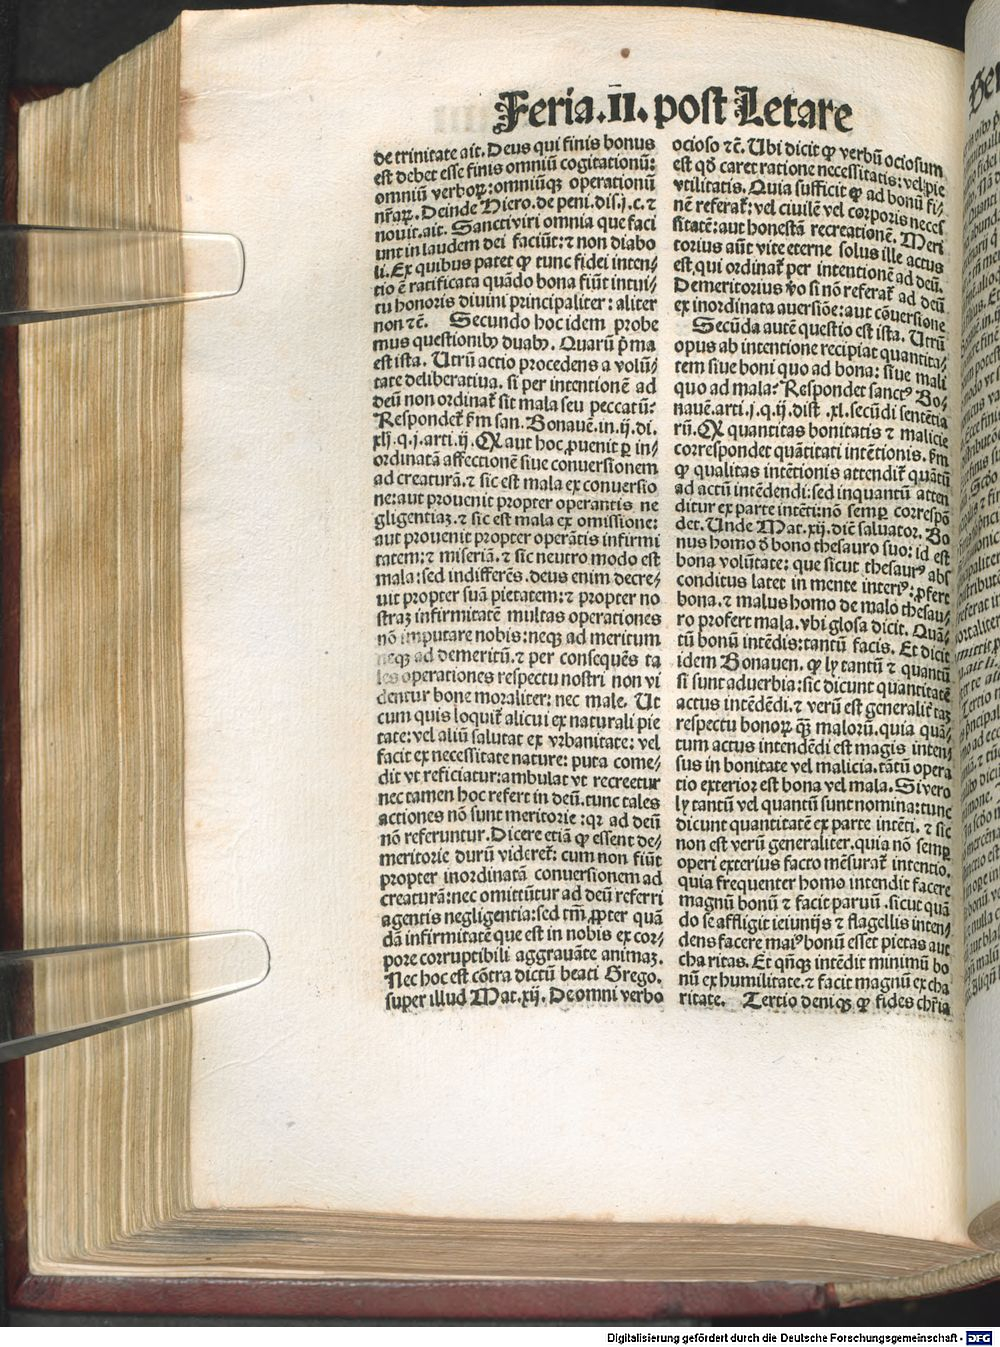 Feria.II. post Letare
de trinitate ait. Deus qui finis bonus
est debet esse finis omniū cogitationū:
omniū verboꝝ: omniūqꝫ operationū
nr̄aꝝ. Deinde Hiero. de peni. dis. j. c. ⁊
nouit. ait. Sancti viri omnia que faci
unt in laudem dei faciūt: ⁊ non diabo
li. Ex quibus patet ꝙ tunc fidei inten⸗
tio ē ratificata quādo bona fiūt intui⸗
tu honoris diuini principaliter: aliter
non ⁊c̄. Secundo hoc idem probe
mus questionibꝰ duabꝰ. Quarū p̄ma
est ista. Utrū actio procedens a volū⸗
tate deliberatiua. si per intentionē ad
deū non ordinat̄ sit mala seu peccatū:
Respondet̄ ẜm san. Bonauē. in. ij. di.
xlj. q. j. arti. ij. Ꝙ aut hoc ꝓuenit ꝑ in⸗
ordinatā affectionē siue conuersionem
ad creaturā. ⁊ sic est mala ex conuersio
ne: aut prouenit propter operantis ne
gligentiaꝫ. ⁊ sic est mala ex omissione:
aut prouenit propter operātis infirmi
tatem: ⁊ miseriā. ⁊ sic neutro modo est
mala: sed indifferēs. deus enim decre⸗
uit propter suā pietatem: ⁊ propter no
straꝫ infirmitatē multas operationes
nō imputare nobis: neqꝫ ad meritum
neqꝫ ad demeritū. ⁊ per consequēs ta
les operationes respectu nostri non vi
dentur bone moraliter: nec male. Ut
cum quis loquit̄ alicui ex naturali pie
tate: vel aliū salutat ex vrbanitate: vel
facit ex necessitate nature: puta come⸗
dit vt reficiatur: ambulat vt recreetur
nec tamen hoc refert in deū. tunc tales
actiones nō sunt meritorie: qꝛ ad deū
nō referuntur. Dicere etiā ꝙ essent de⸗
meritorie durū videret̄: cum non fiūt
propter inordinatā conuersionem ad
creaturā: nec omittūtur ad deū referri
agentis negligentia: sed tm̄ ꝓpter quā
dā infirmitatē que est in nobis ex cor⸗
pore corruptibili aggrauāte animaꝫ.
Nec hoc est cōtra dictū beati Grego.
super illud Mat. xij. De omni verbo
ocioso ⁊c̄. Ubi dicit ꝙ verbū ociosum
est qd̄ caret ratione necessitatis: vel pie
vtilitatis. Quia sufficit ꝙ ad bonū fi⸗
nē referat̄: vel ciuilē vel corporis neces
sitatē: aut honestā recreationē. Meri
torius aūt vite eterne solus ille actus
est, qui ordinat̄ per intentionē ad deū.
Demeritorius v̄o si nō referat̄ ad deū
ex inordinata auersiōe: aut cōuersione
Secūda autē questio est ista. Utrū
opus ab intentione recipiat quantita⸗
tem siue boni quo ad bona: siue mali
quo ad mala: Respondet sanctꝰ Bo⸗
nauē. arti. j. q. ij. dist. xl. secūdi sentētia
rū. Ꝙ quantitas bonitatis ⁊ malicie
correspondet quātitati intētionis. ẜm
ꝙ qualitas intētionis attendit̄ quātū
ad actū intēdendi: sed inquantū atten
ditur ex parte intēti: nō semꝑ correspō
det. Unde Mat. xij. dicē saluator. Bo
nus homo d̄ bono thesauro suo: id est
bona volūtate: que sicut thesaurꝰ abs
conditus latet in mente interiꝰ: ꝓfert
bona. ⁊ malus homo de malo thesau⸗
ro profert mala. vbi glosa dicit. Quā⸗
tū bonū intēdis: tantū facis. Et dicit
idem Bonauen. ꝙ ly tantū ⁊ quantū
si sunt aduerbia: sic dicunt quantitatē
actus intēdēdi. ⁊ verū est generalit̄ taꝫ
respectu bonoꝝ qꝫ̄ malorū. quia quā⸗
tum actus intendēdi est magis inten⸗
sus in bonitate vel malicia. tātū opera
tio exterior est bona vel mala. Si vero
ly tantū vel quantū sunt nomina: tunc
dicunt quantitatē ex parte intēti. ⁊ sic
non est verū generaliter. quia nō semꝑ
operi exterius facto mēsurat̄ intentio.
quia frequenter homo intendit facere
magnū bonū ⁊ facit paruū. sicut quā
do se affligit ieiunijs ⁊ flagellis inten⸗
dens facere maiꝰ bonū esset pietas aut
charitas. Et qn̄qꝫ intēdit minimū bo
nū ex humilitate. ⁊ facit magnū ex cha
ritate. Tertio deniqꝫ ꝙ fides chr̄ia
Digitalisierung gefördert durch die Deutsche Forschungsgemeinschaft - DFG